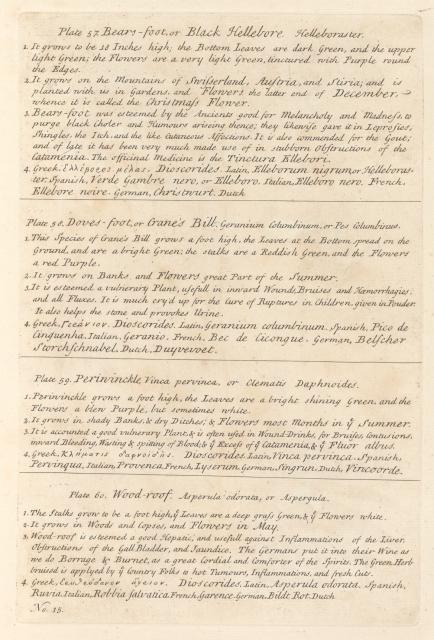 Plate 57. Bears-foot, or Black Hellebore. Helleboraster.
1. It grows to be 18 Inches high; the Bottom Leaves are dark Green, and the upper
light Green; the Flowers are a very light Green, tinctured with Purple round
the Edges.
2. It grows on the Mountains of Swisserland, Austria, and Stiria; and is
planted with us in Gardens, and Flowers the latter end of December,
whence it is called the Christmass Flower.
3. Bears-foot was esteemed by the Ancients good for Melancholy and Madness, to
purge black Choler and Humours arising thence; they likewise gave it in Leprosies,
Shingles, the Itch, and the like Cutaneous Affections. It is also commended for the Gout;
and of late it has been very much made use of in stubborn Obstructions of the
Catamenia. The officinal Medicine is the Tinctura Ellebori.
4. Greek, Ελλέβορος μέλας. Dioscorides. Latin, Elleborum nigrum or Helleboras-
ter. Spanish, Verde Gambre nero, or Elleboro. Italian, Elleboro nero. French,
Ellebore noire. German, Christwurt. Dutch
Plate 58. Doves-foot, or Crane's Bill; Geranium Columbinum, or Pes Columbinus.
1. This Species of Crane's Bill grows a foot high, the Leaves at the Bottom spread on the
Ground, and are a bright Green; the stalks are a Reddish Green, and the Flowers
a red Purple.
2. It grows on Banks and Flowers great Part of the Summer.
3. It is esteemed a vulnerary Plant, usefull in inward Wounds, Bruises and Hæmorrhagies,
and all Fluxes. It is much cry'd up for the Cure of Ruptures in Children, given in Pouder.
It also helps the stone and provokes Urine.
4. Greek, Γεράνιον. Dioscorides. Latin, Geranium columbinum. Spanish, Pico de
Cinguenha. Italian, Geranio. French, Bec de Cicongue. German, Belscher
Storchschnabel. Dutch, Duivevoet.
Plate 59. Periwinckle Vinca pervinca, or Clematis Daphnoides.
1. Periwinckle grows a foot high, the Leaves are a bright shining Green, and the
Flowers a blew Purple, but sometimes white.
2. It grows in shady Banks, & dry Ditches; & Flowers most Months in ye Summer.
3. It is accounted a good vulnerary Plant & is often used in Wound-Drinks, for Bruises, Contusions,
inward Bleeding, Wasting & spiting of Blood; & ye Excess of ye Catamenia, & ye Fluor albus.
4. Greek, Κλήματις δαφνοίδης. Dioscorides. Latin, Vinca pervinca. Spanish,
Pervinqua, Italian, Provenca, French, Lyserum, German, Singrun. Dutch, Vincoorde.
Plate 60. Wood-roof. Asperula odorata, or Aspergula.
1. The Stalks grow to be a foot high, ye Leaves are a deep grass Green, & ye Flowers white.
2. It grows in Woods and Copses, and Flowers in May.
3. Wood-roof is esteemed a good Hepatic, and usefull against Inflammations of the Liver,
Obstructions of the Gall Bladder, and Jaundice. The Germans put it into their Wine as
we do Borrage & Burnet, as a great Cordial and Comforter of the Spirits. The Green Herb
bruised is applyed by ye Country Folks to hot Tumours, Inflammations, and fresh Cuts.
4. Greek, Dioscorides. Latin, Asperula odorata. Spanish,
Ruvia. Italian, Robbia salvatica. French, Garence. German, Bildt Rot. Dutch
No. 15.